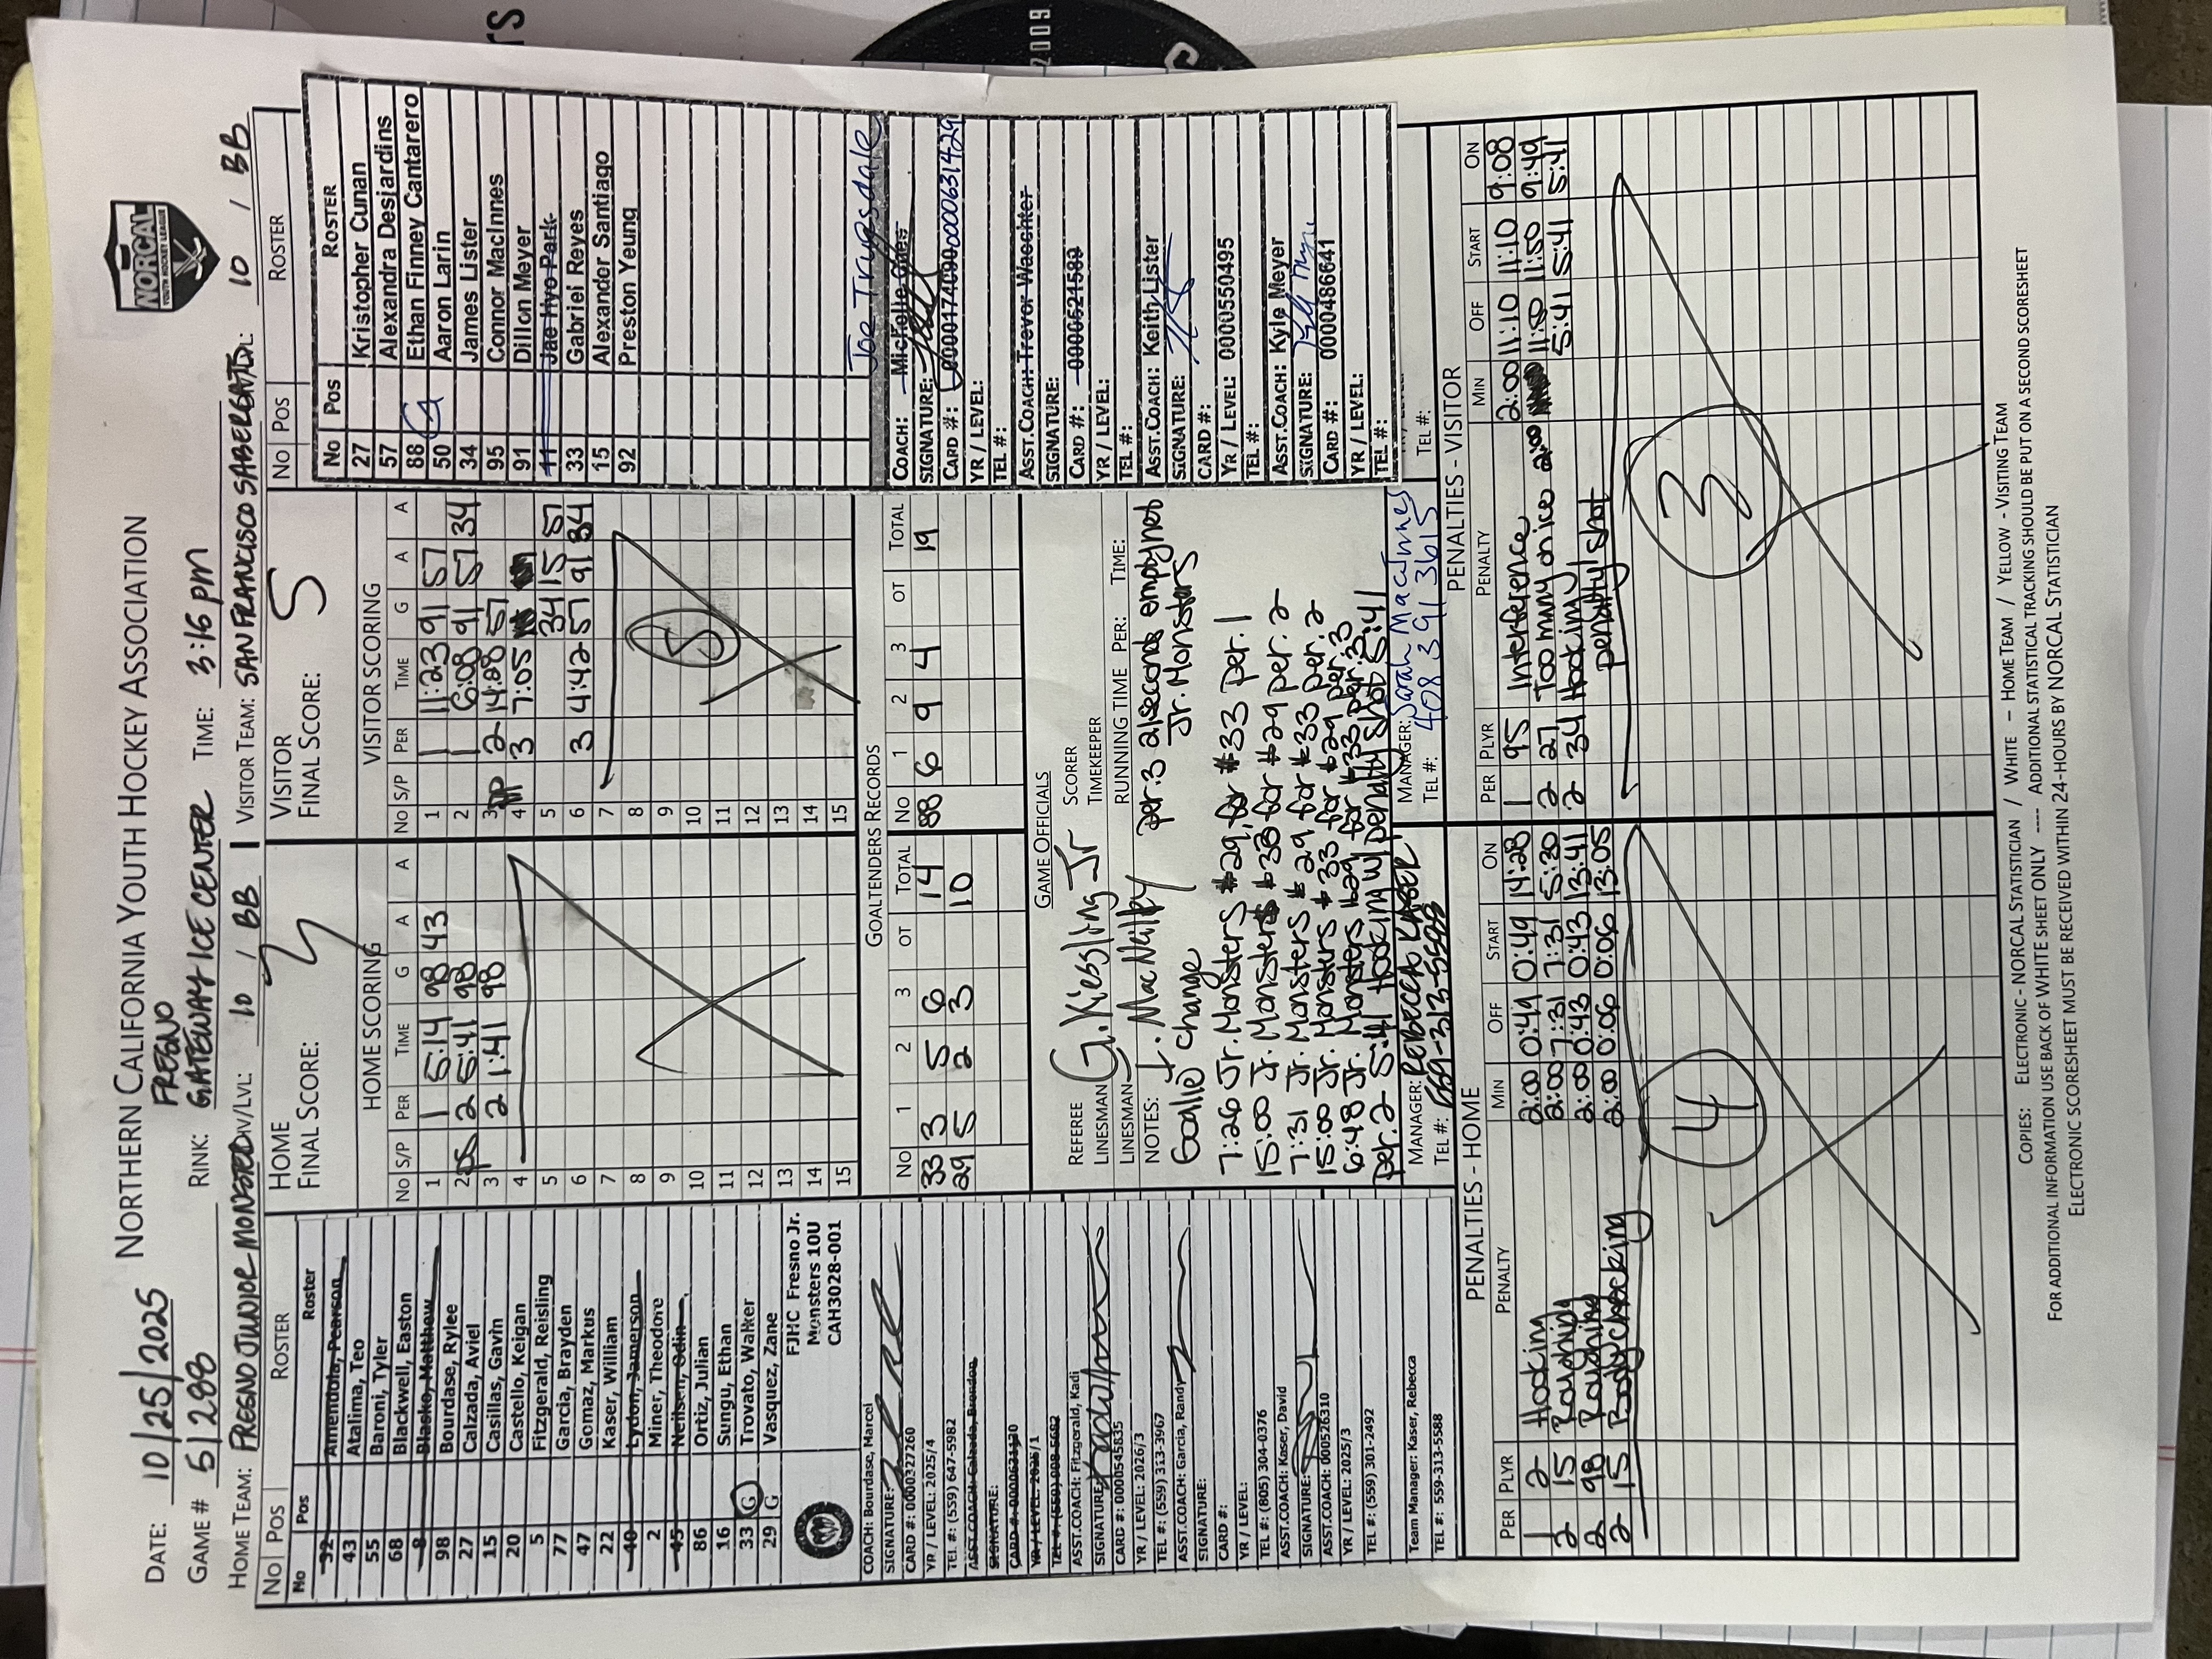 NORTHERN CALIFORNIA YOUTH HOCKEY ASSOCIATION
NORCAL
YOUTH HOCKEY LEAGUE
2009
DATE: 10/25/2025
FRESNO
GAME # 51288 RINK: GATEWAY ICE CENTER TIME: 3:16 pm
HOME TEAM: FRESNO JUNIOR MONSTERS DIV/LVL: 10 / BB
VISITOR TEAM: SAN FRANCISCO SABERCATS 10 / BB
NO POS ROSTER
No Pos Roster
32 Amendola, Pearson
43 Atalima, Teo
55 Baroni, Tyler
68 Blackwell, Easton
8 Blasko, Matthew
98 Bourdase, Rylee
27 Calzada, Aviel
15 Casillas, Gavin
20 Castello, Keigan
5 Fitzgerald, Reisling
77 Garcia, Brayden
47 Gomaz, Markus
22 Kaser, William
40 Lydon, Jamerson
2 Miner, Theodore
45 Neilsen, Odin
86 Ortiz, Julian
16 Sungu, Ethan
33 G Trovato, Walker
29 G Vasquez, Zane
FJHC Fresno Jr.
Monsters 10U
CAH3028-001
COACH: Bourdase, Marcel
SIGNATURE:
CARD #: 0000327260
YR / LEVEL: 2025/4
TEL #: (559) 647-5982
ASST.COACH: Calzada, Brendon
SIGNATURE:
CARD #: 0000631130
YR / LEVEL: 2025/1
TEL #: (559) 908-5682
ASST.COACH: Fitzgerald, Kadi
SIGNATURE:
CARD #: 0000545835
YR / LEVEL: 2026/3
TEL #: (559) 313-3967
ASST.COACH: Garcia, Randy
SIGNATURE:
CARD #:
YR / LEVEL:
TEL #: (805) 304-0376
ASST.COACH: Kaser, David
SIGNATURE:
ASST.COACH: 0000526310
YR / LEVEL: 2025/3
TEL #: (559) 301-2492
Team Manager: Kaser, Rebecca
TEL #: 559-313-5588
HOME
FINAL SCORE: 3
HOME SCORING
NO S/P PER TIME G A A
1 1 5:14 98 43
2 PS 2 5:41 98
3 2 1:41 98
4
5
6
7
8
9
10
11
12
13
14
15
VISITOR
FINAL SCORE: 5
VISITOR SCORING
NO S/P PER TIME G A A
1 1 11:23 91 57
2 1 6:08 91 57 34
3 PP 2 14:28 57
4 3 7:05
5 34 15 57
6 3 4:42 57 91 34
7
8 5
9
10
11
12
13
14
15
GOALTENDERS RECORDS
NO 1 2 3 OT TOTAL
33 3 5 6 14
29 5 2 3 10
NO 1 2 3 OT TOTAL
88 6 9 4 19
GAME OFFICIALS
REFEREE G. Kiessling Jr SCORER
LINESMAN TIMEKEEPER
LINESMAN J. MacNalley RUNNING TIME PER: TIME:
NOTES: per.3 21 seconds empty net
Goalie change Jr. Monsters
7:26 Jr. Monsters #29 for #33 per. 1
15:00 Jr. Monsters #33 for #29 per. 2
7:31 Jr. Monsters #29 for #33 per. 2
15:00 Jr. Monsters #33 for #29 per. 3
6:48 Jr. Monsters #29 for #33 per. 3
per. 2 5:41 Hooking w/ penalty shot 5:41
MANAGER: REBECCA KASER
TEL #: 559-313-5588
MANAGER: Sarah MacInnes
TEL #: 408 391 3615
No Pos ROSTER
27 Kristopher Cunan
57 Alexandra Desjardins
88 G Ethan Finney Cantarero
50 Aaron Larin
34 James Lister
95 Connor MacInnes
91 Dillon Meyer
11 Jae Hyo Park
33 Gabriel Reyes
15 Alexander Santiago
92 Preston Yeung
Joe Truesdale
COACH: Michelle
SIGNATURE:
CARD #: 0000174090 0000631429
YR / LEVEL:
TEL #:
ASST.COACH: Trevor Waechter
SIGNATURE:
CARD #: 0000521580
YR / LEVEL:
TEL #:
ASST.COACH: Keith Lister
SIGNATURE:
CARD #:
YR / LEVEL: 0000550495
TEL #:
ASST.COACH: Kyle Meyer
SIGNATURE:
CARD #: 0000486641
YR / LEVEL:
TEL #:
TEL #:
PENALTIES - HOME
PER PLYR PENALTY MIN OFF START ON
1 2 Hooking 2:00 0:49 0:49 14:28
2 15 Roughing 2:00 7:31 7:31 5:30
2 98 Roughing 2:00 0:43 0:43 13:41
2 15 Bodychecking 2:00 0:06 0:06 13:05
4
PENALTIES - VISITOR
PER PLYR PENALTY MIN OFF START ON
1 95 Interference 2:00 11:10 11:10 9:08
2 27 Too many on ice 2:00 11:50 11:50 9:49
2 34 Hooking/ 5:41 5:41 5:41
penalty shot
3
COPIES: ELECTRONIC - NORCAL STATISTICIAN / WHITE – HOME TEAM / YELLOW - VISITING TEAM
FOR ADDITIONAL INFORMATION USE BACK OF WHITE SHEET ONLY ---- ADDITIONAL STATISTICAL TRACKING SHOULD BE PUT ON A SECOND SCORESHEET
ELECTRONIC SCORESHEET MUST BE RECEIVED WITHIN 24-HOURS BY NORCAL STATISTICIAN